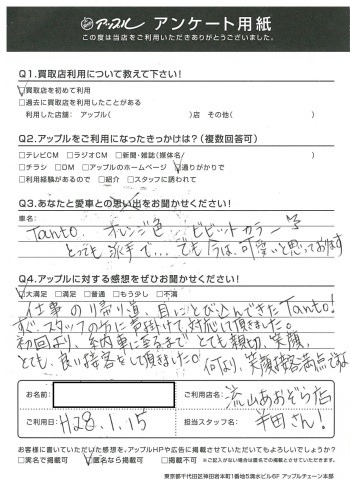 アップル アンケート用紙
この度は当店をご利用いただきありがとうございました。
Q1.買取店利用について教えて下さい!
☑買取店を初めて利用
□過去に買取店を利用したことがある
利用した店舗: アップル( )店 その他( )
Q2.アップルをご利用になったきっかけは?(複数回答可)
□テレビCM □ラジオCM □新聞・雑誌(媒体名/ )
□チラシ □DM □アップルのホームページ ☑通りがかりで
□利用経験があるので □紹介 □スタッフに誘われて
Q3.あなたと愛車との思い出をお聞かせください!
車名:
Tanto. オレンジ色 ビビットカラーで
とっても派手で… でも今は、可愛いと思っております
Q4.アップルに対する感想をぜひお聞かせください!
☑大満足 □満足 □普通 □もう少し □不満
仕事の帰り道、目にとび込んできたTanto!
すぐ、スタッフの方に声掛けて、対応して頂きました。
初回より、納車に至るまで とても親切、笑顔、
とても、良い接客をして頂きました。何より、笑顔接客満点ですね
お名前:
ご利用店名: 流山あおぞら店
ご利用日: H28.1.15
担当スタッフ名: 半田さん!
お客様に書いていただいた感想を、アップルHPや広告に掲載させていただいてもよろしいでしょうか?
□実名で掲載可 ☑匿名なら掲載可 □掲載不可 ※ご記入がない場合は匿名での掲載とさせていただきます。
東京都千代田区神田岩本町1番地5清水ビル6F アップルチェーン本部